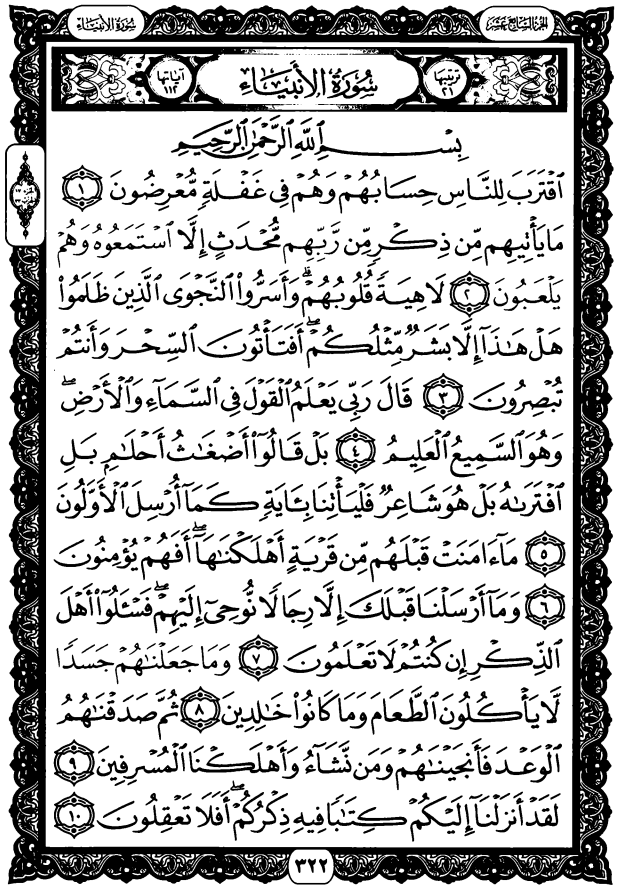 الجزء السابع عشر
سورة الأنبياء
ترتيبها
٢١
سُورَةُ الأَنبِيَاء
آياتها
١١٢
بِسْمِ اللَّهِ الرَّحْمَٰنِ الرَّحِيمِ
ٱقْتَرَبَ لِلنَّاسِ حِسَابُهُمْ وَهُمْ فِى غَفْلَةٍ مُّعْرِضُونَ ١
مَا يَأْتِيهِم مِّن ذِكْرٍ مِّن رَّبِّهِم مُّحْدَثٍ إِلَّا ٱسْتَمَعُوهُ وَهُمْ
يَلْعَبُونَ ٢ لَاهِيَةً قُلُوبُهُمْ ۗ وَأَسَرُّوا۟ ٱلنَّجْوَى ٱلَّذِينَ ظَلَمُوا۟
هَلْ هَٰذَآ إِلَّا بَشَرٌ مِّثْلُكُمْ ۖ أَفَتَأْتُونَ ٱلسِّحْرَ وَأَنتُمْ
تُبْصِرُونَ ٣ قَالَ رَبِّى يَعْلَمُ ٱلْقَوْلَ فِى ٱلسَّمَآءِ وَٱلْأَرْضِ ۖ
وَهُوَ ٱلسَّمِيعُ ٱلْعَلِيمُ ٤ بَلْ قَالُوٓا۟ أَضْغَٰثُ أَحْلَٰمٍۭ بَلِ
ٱفْتَرَىٰهُ بَلْ هُوَ شَاعِرٌ فَلْيَأْتِنَا بِـَٔايَةٍ كَمَآ أُرْسِلَ ٱلْأَوَّلُونَ
٥ مَآ ءَامَنَتْ قَبْلَهُم مِّن قَرْيَةٍ أَهْلَكْنَٰهَآ ۖ أَفَهُمْ يُؤْمِنُونَ
٦ وَمَآ أَرْسَلْنَا قَبْلَكَ إِلَّا رِجَالًا نُّوحِىٓ إِلَيْهِمْ ۖ فَسْـَٔلُوٓا۟ أَهْلَ
ٱلذِّكْرِ إِن كُنتُمْ لَا تَعْلَمُونَ ٧ وَمَا جَعَلْنَٰهُمْ جَسَدًا
لَّا يَأْكُلُونَ ٱلطَّعَامَ وَمَا كَانُوا۟ خَٰلِدِينَ ٨ ثُمَّ صَدَقْنَٰهُمُ
ٱلْوَعْدَ فَأَنجَيْنَٰهُمْ وَمَن نَّشَآءُ وَأَهْلَكْنَا ٱلْمُسْرِفِينَ ٩
لَقَدْ أَنزَلْنَآ إِلَيْكُمْ كِتَٰبًا فِيهِ ذِكْرُكُمْ ۖ أَفَلَا تَعْقِلُونَ ١٠
٣٢٢